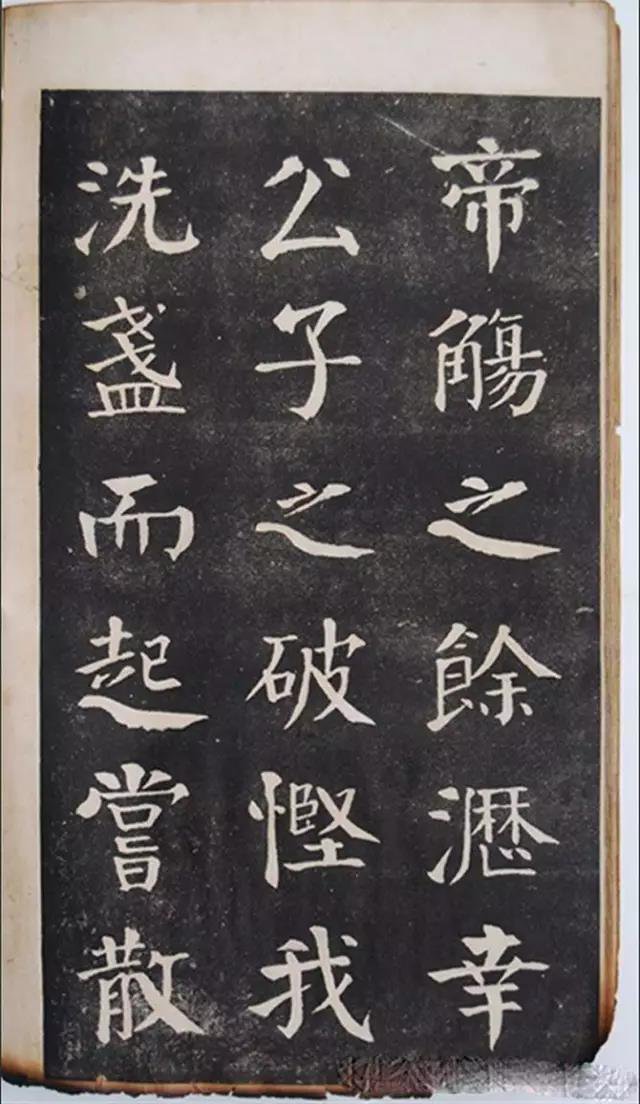 帝觴之餘瀝幸
公子之破慳我
洗盞而起嘗散